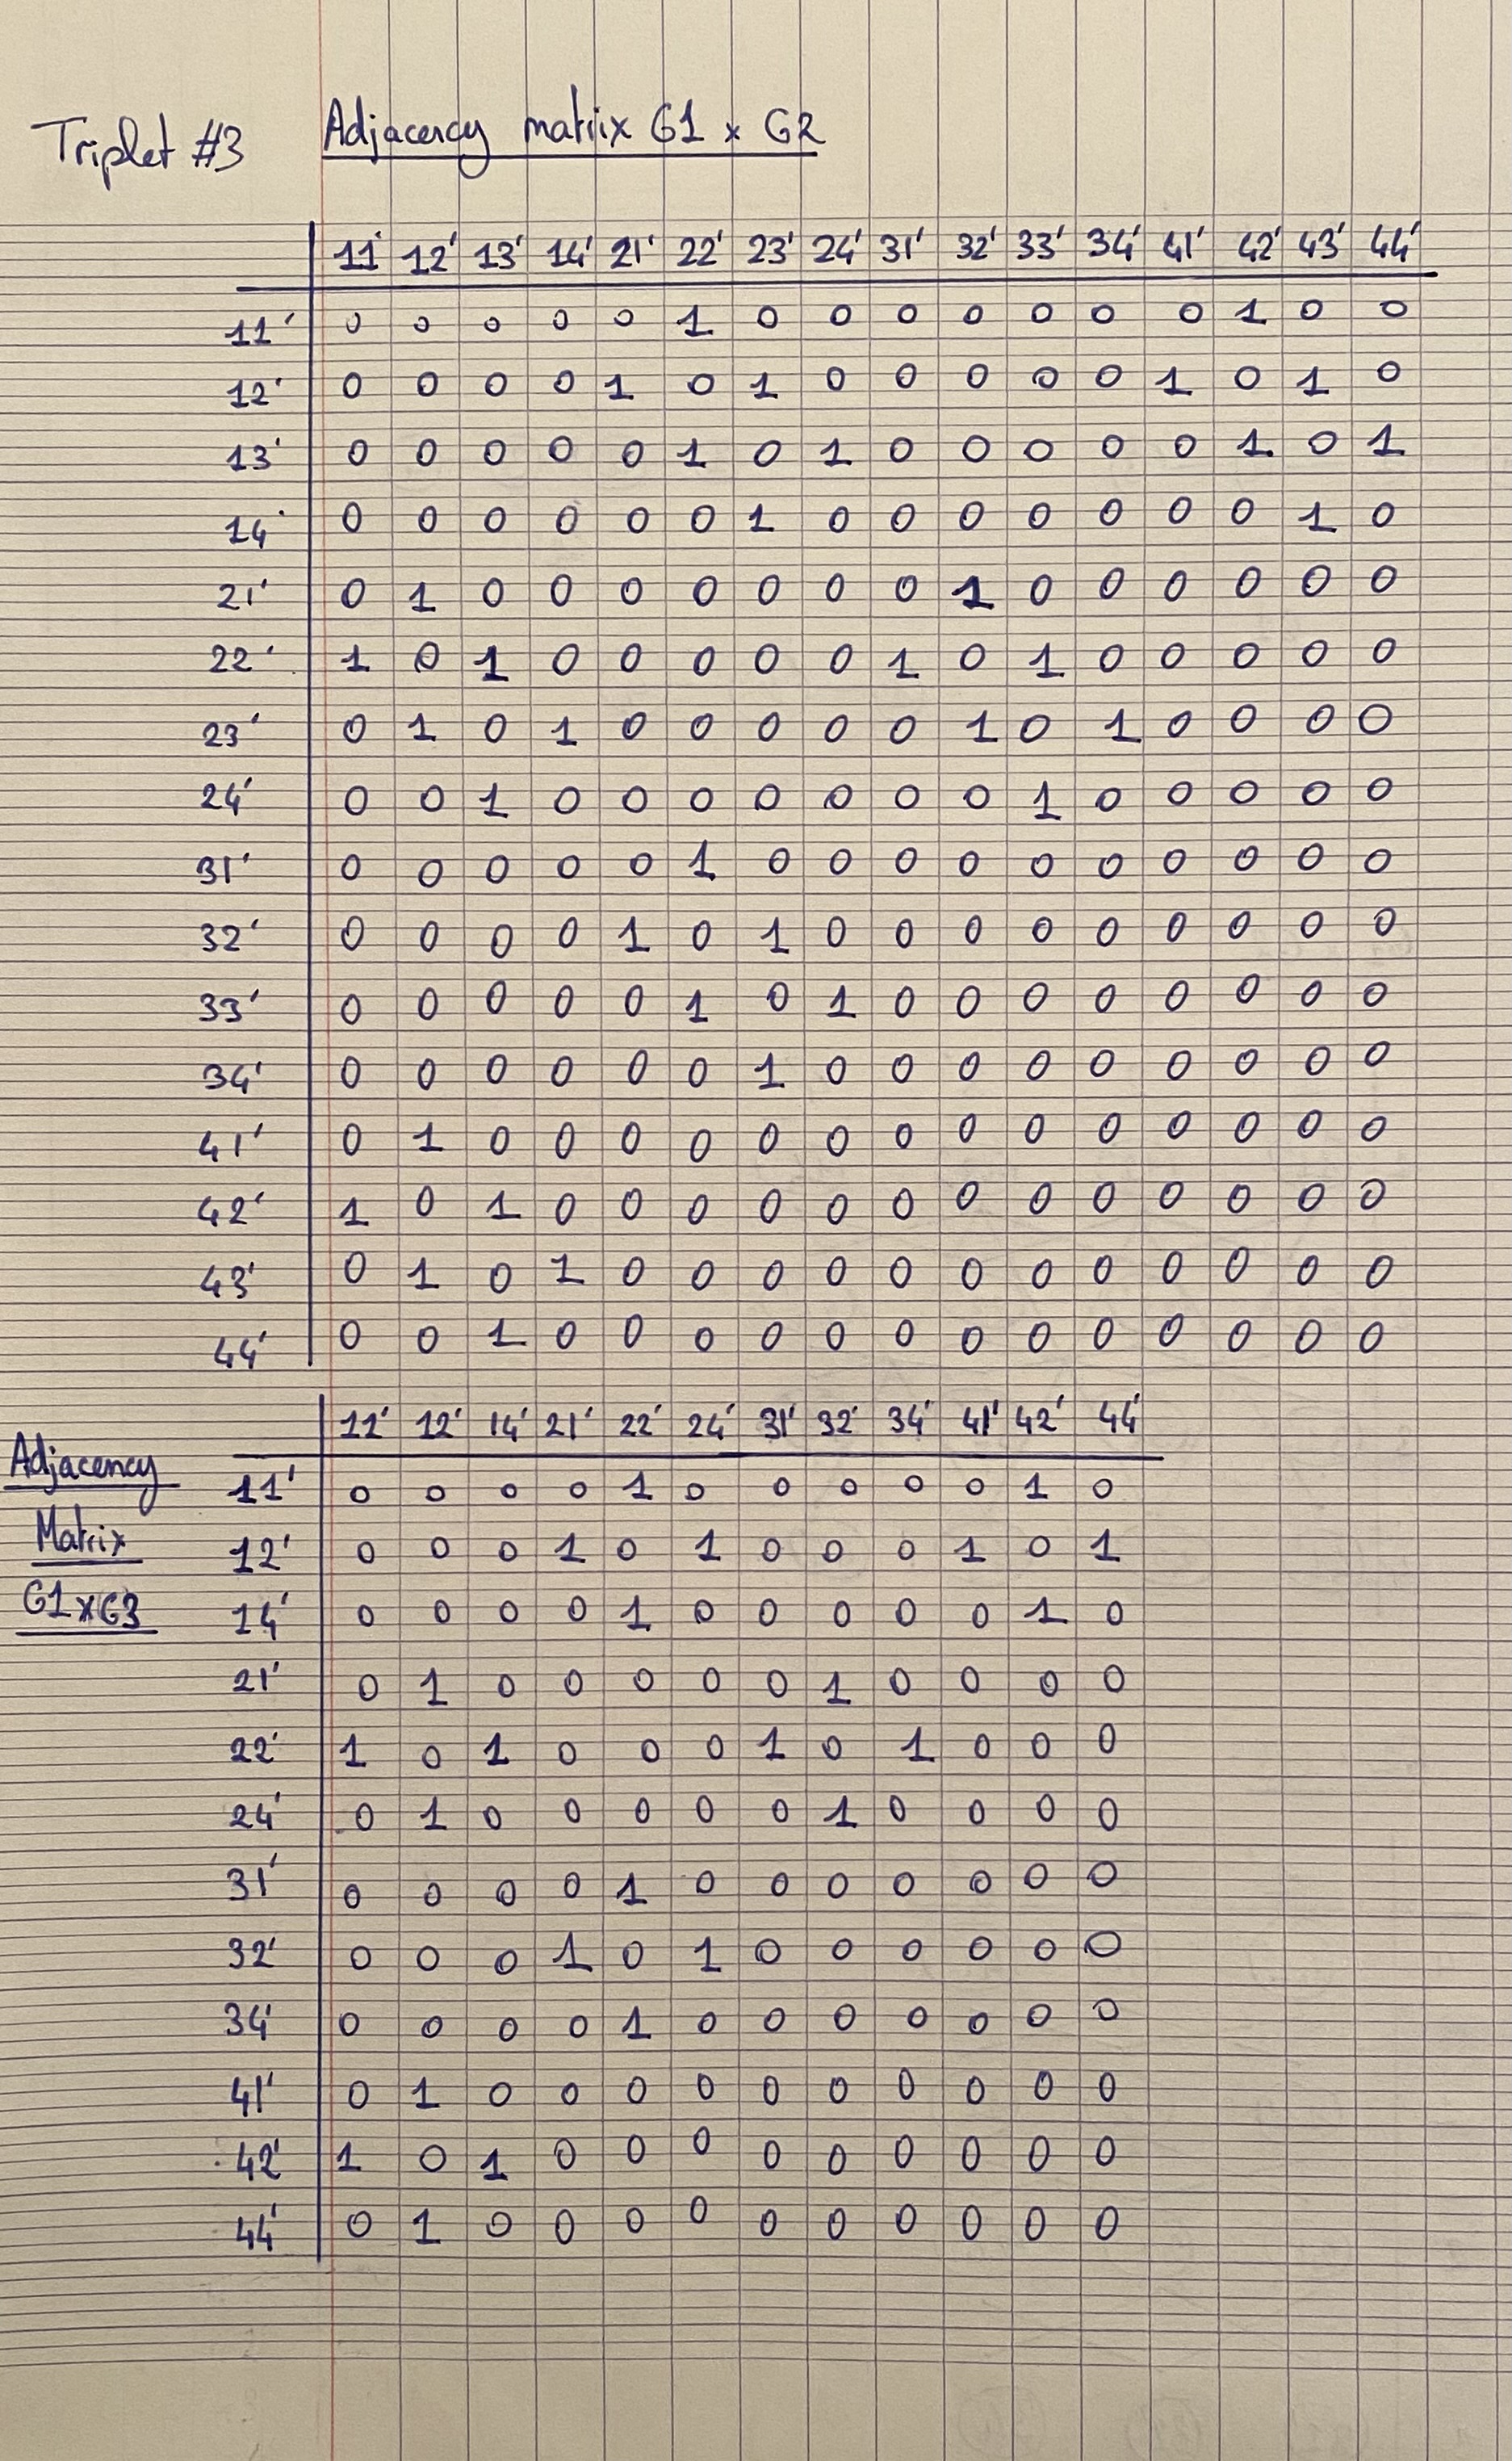 Triplet #3 Adjacency matrix G1 x G2
11' 12' 13' 14' 21' 22' 23' 24' 31' 32' 33' 34' 41' 42' 43' 44'
11' 0 0 0 0 0 1 0 0 0 0 0 0 0 1 0 0
12' 0 0 0 0 1 0 1 0 0 0 0 0 1 0 1 0
13' 0 0 0 0 0 1 0 1 0 0 0 0 0 1 0 1
14' 0 0 0 0 0 0 1 0 0 0 0 0 0 0 1 0
21' 0 1 0 0 0 0 0 0 0 1 0 0 0 0 0 0
22' 1 0 1 0 0 0 0 0 1 0 1 0 0 0 0 0
23' 0 1 0 1 0 0 0 0 0 1 0 1 0 0 0 0
24' 0 0 1 0 0 0 0 0 0 0 1 0 0 0 0 0
31' 0 0 0 0 0 1 0 0 0 0 0 0 0 0 0 0
32' 0 0 0 0 1 0 1 0 0 0 0 0 0 0 0 0
33' 0 0 0 0 0 1 0 1 0 0 0 0 0 0 0 0
34' 0 0 0 0 0 0 1 0 0 0 0 0 0 0 0 0
41' 0 1 0 0 0 0 0 0 0 0 0 0 0 0 0 0
42' 1 0 1 0 0 0 0 0 0 0 0 0 0 0 0 0
43' 0 1 0 1 0 0 0 0 0 0 0 0 0 0 0 0
44' 0 0 1 0 0 0 0 0 0 0 0 0 0 0 0 0
Adjacency
Matrix
G1 x G3
11' 12' 14' 21' 22' 24' 31' 32' 34' 41' 42' 44'
11' 0 0 0 0 1 0 0 0 0 0 1 0
12' 0 0 0 1 0 1 0 0 0 1 0 1
14' 0 0 0 0 1 0 0 0 0 0 1 0
21' 0 1 0 0 0 0 0 1 0 0 0 0
22' 1 0 1 0 0 0 1 0 1 0 0 0
24' 0 1 0 0 0 0 0 1 0 0 0 0
31' 0 0 0 0 1 0 0 0 0 0 0 0
32' 0 0 0 1 0 1 0 0 0 0 0 0
34' 0 0 0 0 1 0 0 0 0 0 0 0
41' 0 1 0 0 0 0 0 0 0 0 0 0
42' 1 0 1 0 0 0 0 0 0 0 0 0
44' 0 1 0 0 0 0 0 0 0 0 0 0